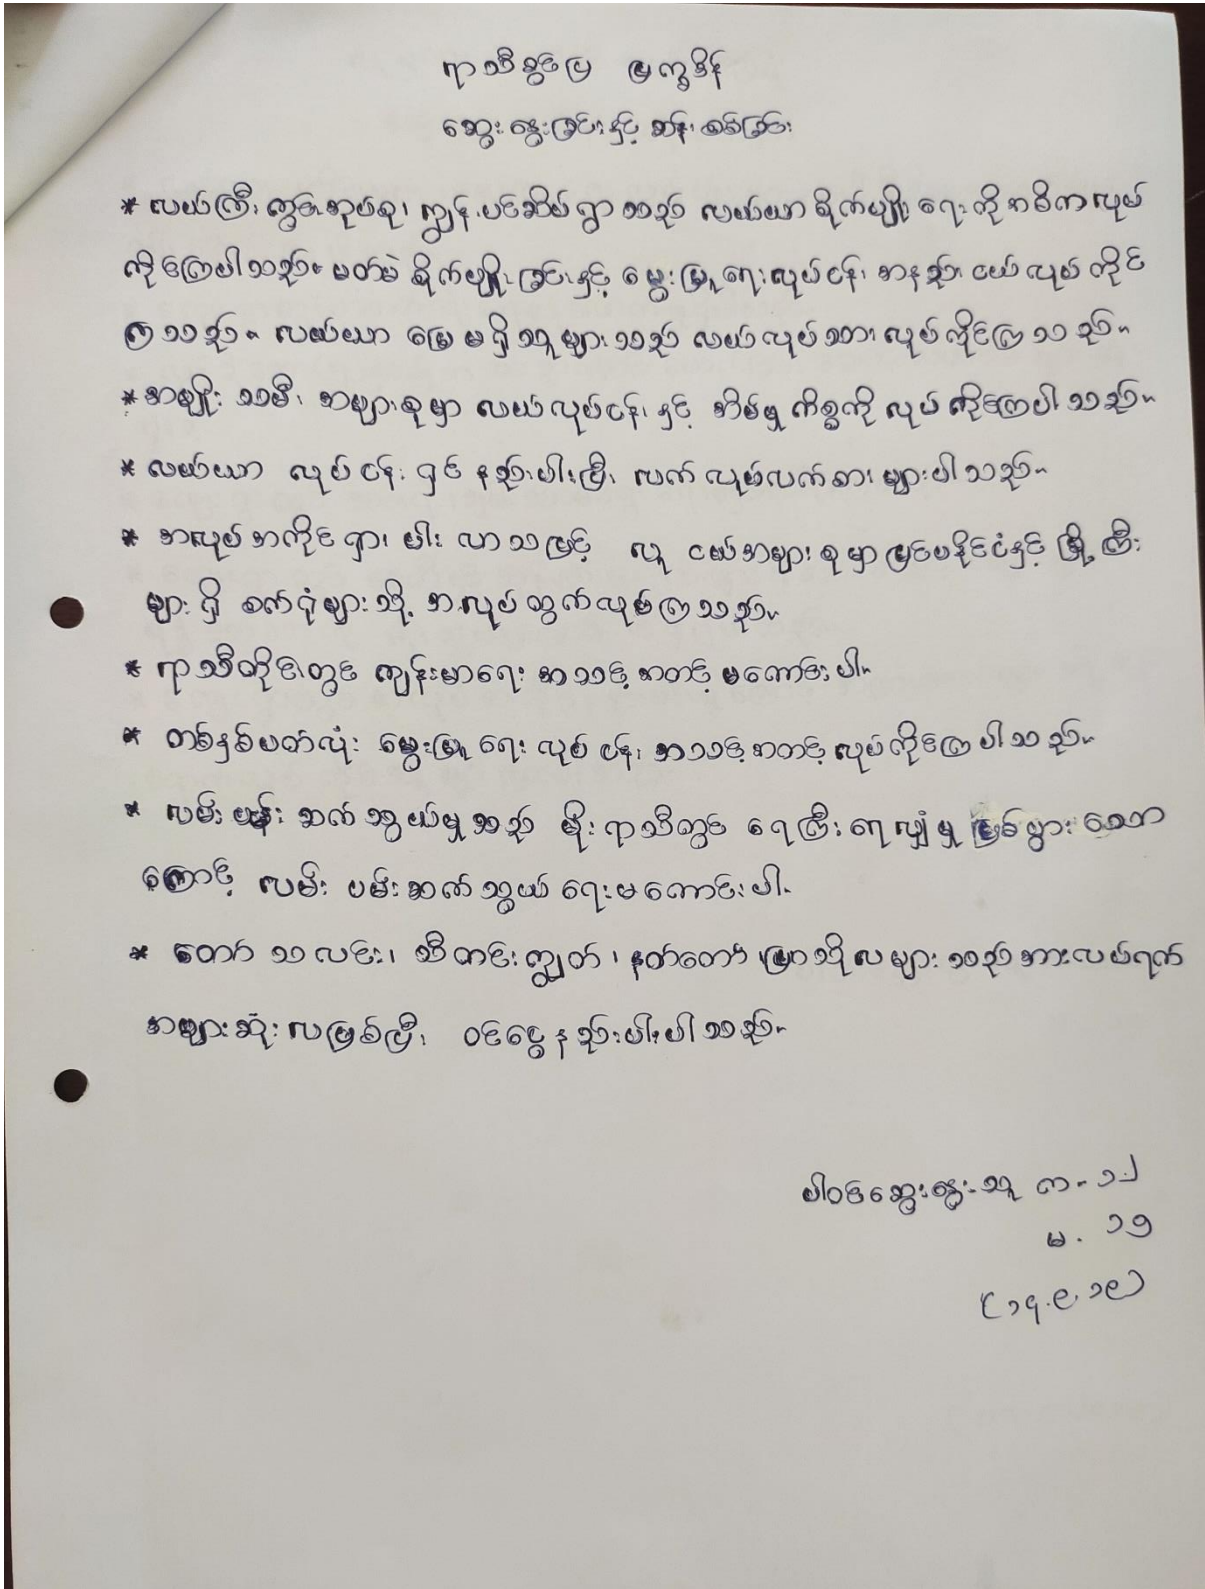 ရာသီခွင်ပြ ပြက္ခဒိန်
ဆွေးနွေးခြင်းနှင့် ဆန်းစစ်ခြင်း
* လယ်ကြီးကွင်းအုပ်စု၊ ကျွန်းပင်ဆိပ်ရွာသည် လယ်ယာစိုက်ပျိုးရေးကိုအဓိကလုပ်
ကိုင်ကြပါသည်။ မတ်ပဲစိုက်ပျိုးခြင်းနှင့် မွေးမြူရေးလုပ်ငန်း အနည်းငယ်လုပ်ကိုင်
ကြသည်။ လယ်ယာမြေမရှိသူများသည် လယ်လုပ်သားလုပ်ကိုင်ကြသည်။
* အမျိုးသမီးအများစုမှာ လယ်လုပ်ငန်းနှင့် အိမ်မှုကိစ္စကို လုပ်ကိုင်ကြပါသည်။
* လယ်ယာ လုပ်ငန်းရှင်နည်းပါးပြီး လက်လုပ်လက်စားများပါသည်။
* အလုပ်အကိုင်ရှားပါးလာသဖြင့် လူငယ်အများစုမှာမြင်ပနိုင်ငံနှင့် မြို့ကြီး
များရှိ စက်ရုံများသို့ အလုပ်ထွက်လုပ်ကြသည်။
* ရာသီတိုင်းတွင် ကျန်းမာရေး အသင့်အတင့်မကောင်းပါ။
* တစ်နှစ်ပတ်လုံး မွေးမြူရေးလုပ်ငန်း အသင့်အတင့်လုပ်ကိုင်ကြပါသည်။
* လမ်းပန်းဆက်သွယ်မှုသည် မိုးရာသီတွင် ရေကြီးရေလျှံမှုဖြစ်ပွားသော
ကြောင့် လမ်းပမ်းဆက်သွယ်ရေးမကောင်းပါ။
* တော်သလင်း၊ သီတင်းကျွတ်၊ နတ်တော်၊ ပြာသိုလများသည်အားလပ်ရက်
အများဆုံးလဖြစ်ပြီး ဝင်ငွေနည်းပါးပါသည်။
ပါဝင်ဆွေးနွေးသူ က-၁၂
မ. ၁၅
(၁၄.၉.၁၉)